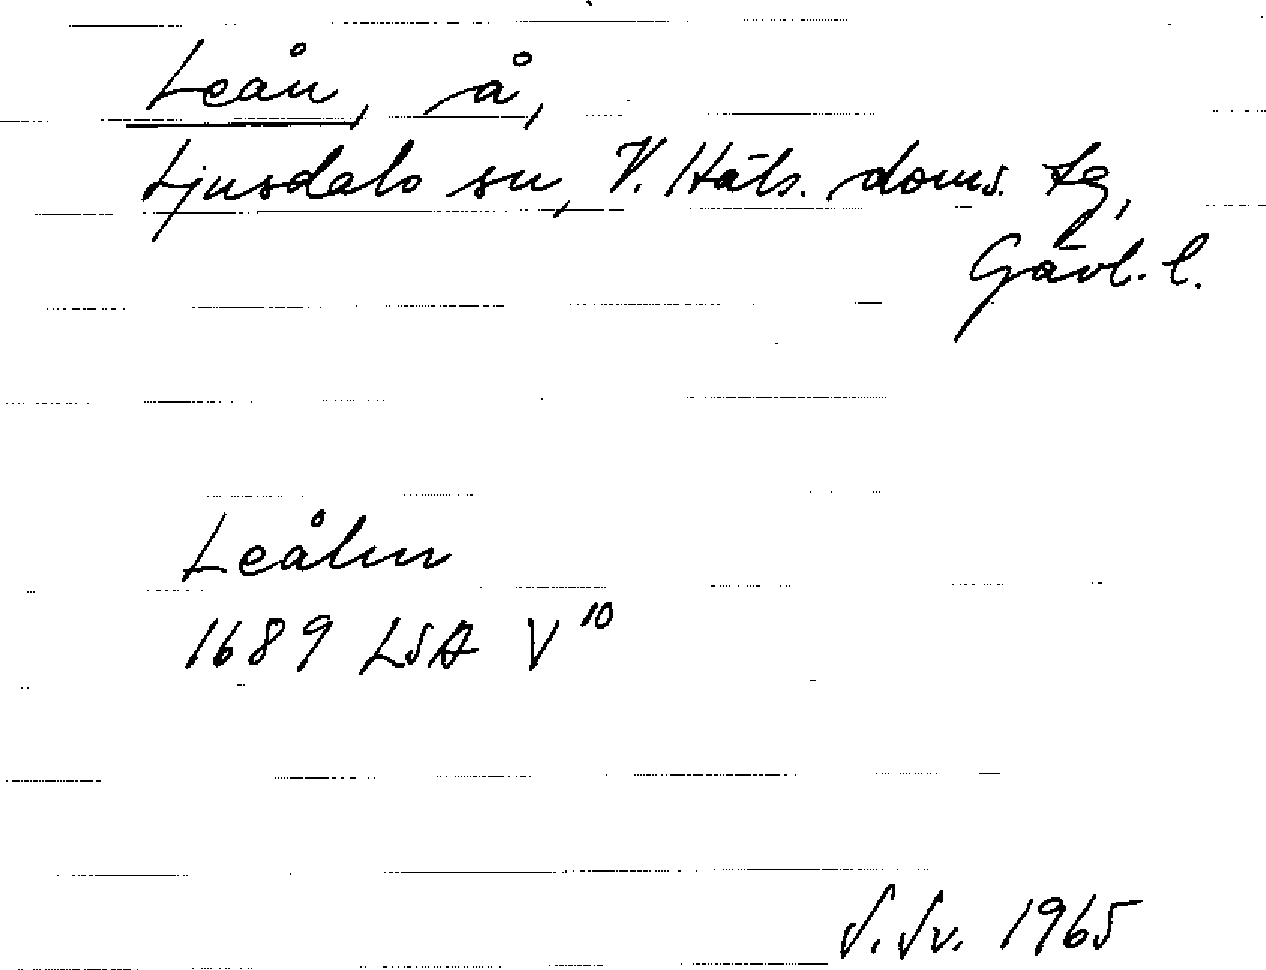 Leån, å,
Ljusdals sn, V. Häls. doms. tg,
Gävl. l.
Leåhn
1689 LSA V 10
S. Sv. 1965